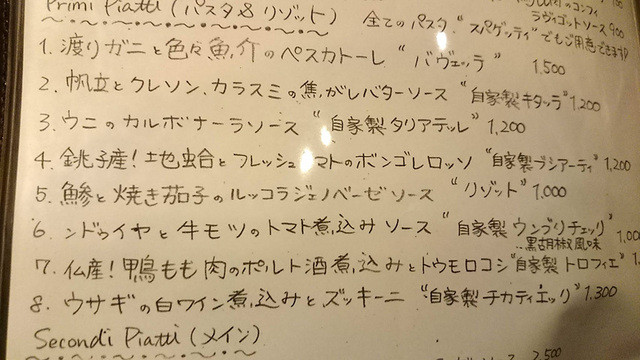 Primi Piatti (パスタ & リゾット)
のコンフィ
ラヴィゴットソース 900
全てのパスタ "スパゲッティ" でもご用意できます!
1. 渡りガニと色々魚介のペスカトーレ "バヴェッラ" 1,500
2. 帆立とクレソン、カラスミの焦がしバターソース "自家製キタッラ" 1,200
3. ウニのカルボナーラソース "自家製タリアテッレ" 1,200
4. 銚子産!地蛤とフレッシュトマトのボンゴレロッソ "自家製ブシアーティ" 1,200
5. 鯵と焼き茄子のルッコラジェノベーゼソース "リゾット" 1,000
6. ンドゥイヤと牛モツのトマト煮込みソース "自家製ウンブリチェッリ"
黒胡椒風味
7. 仏産!鴨もも肉のポルト酒煮込みとトウモロコシ "自家製トロフィエ"
8. ウサギの白ワイン煮込みとズッキーニ "自家製チカティエッリ" 1,300
Secondi Piatti (メイン)